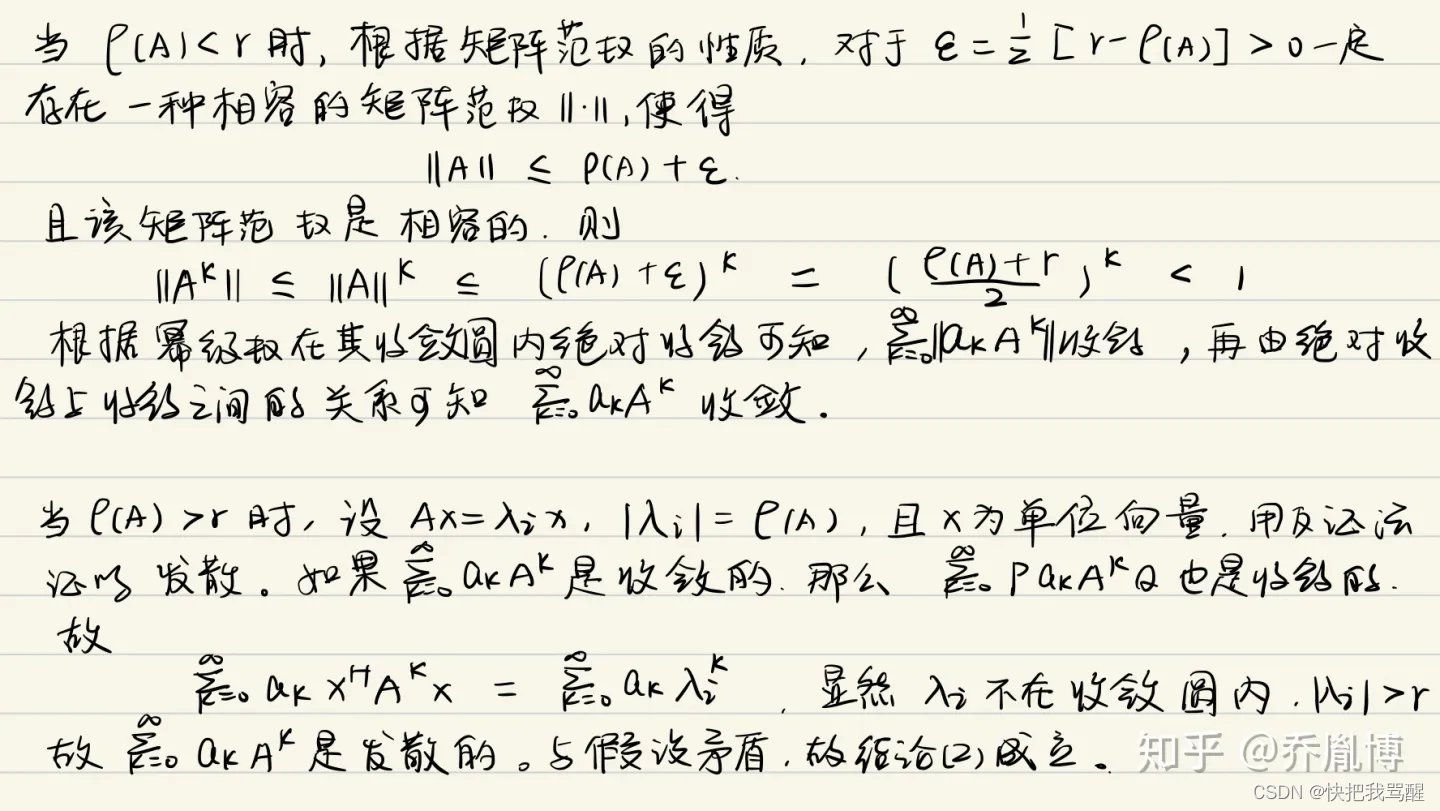 当 ρ(A)<r 时, 根据矩阵范数的性质, 对于 ε = 1/2 [r-ρ(A)] > 0 一定
存在一种相容的矩阵范数 ||·||, 使得
||A|| ≤ ρ(A) + ε.
且该矩阵范数是相容的. 则
||A^K|| ≤ ||A||^K ≤ (ρ(A) + ε)^K = (ρ(A)+r / 2)^K < 1
根据幂级数在其收敛圆内绝对收敛可知, ∑_{k=0}^∞ ||a_K A^K|| 收敛, 再由绝对收
敛与收敛之间的关系可知 ∑_{k=0}^∞ a_K A^K 收敛.
当 ρ(A) >r 时, 设 Ax=λ_i x, |λ_i| = ρ(A), 且 x 为单位向量. 用反证法
证明发散。如果 ∑_{k=0}^∞ a_K A^K 是收敛的. 那么 ∑_{k=0}^∞ P a_K A^K Q 也是收敛的.
故
∑_{k=0}^∞ a_K x^H A^K x = ∑_{k=0}^∞ a_K λ_i^K , 显然 λ_i 不在收敛圆内. |λ_i|>r
故 ∑_{k=0}^∞ a_K A^K 是发散的。与假设矛盾. 故结论(2)成立.
知乎 @乔胤博
CSDN @快把我骂醒